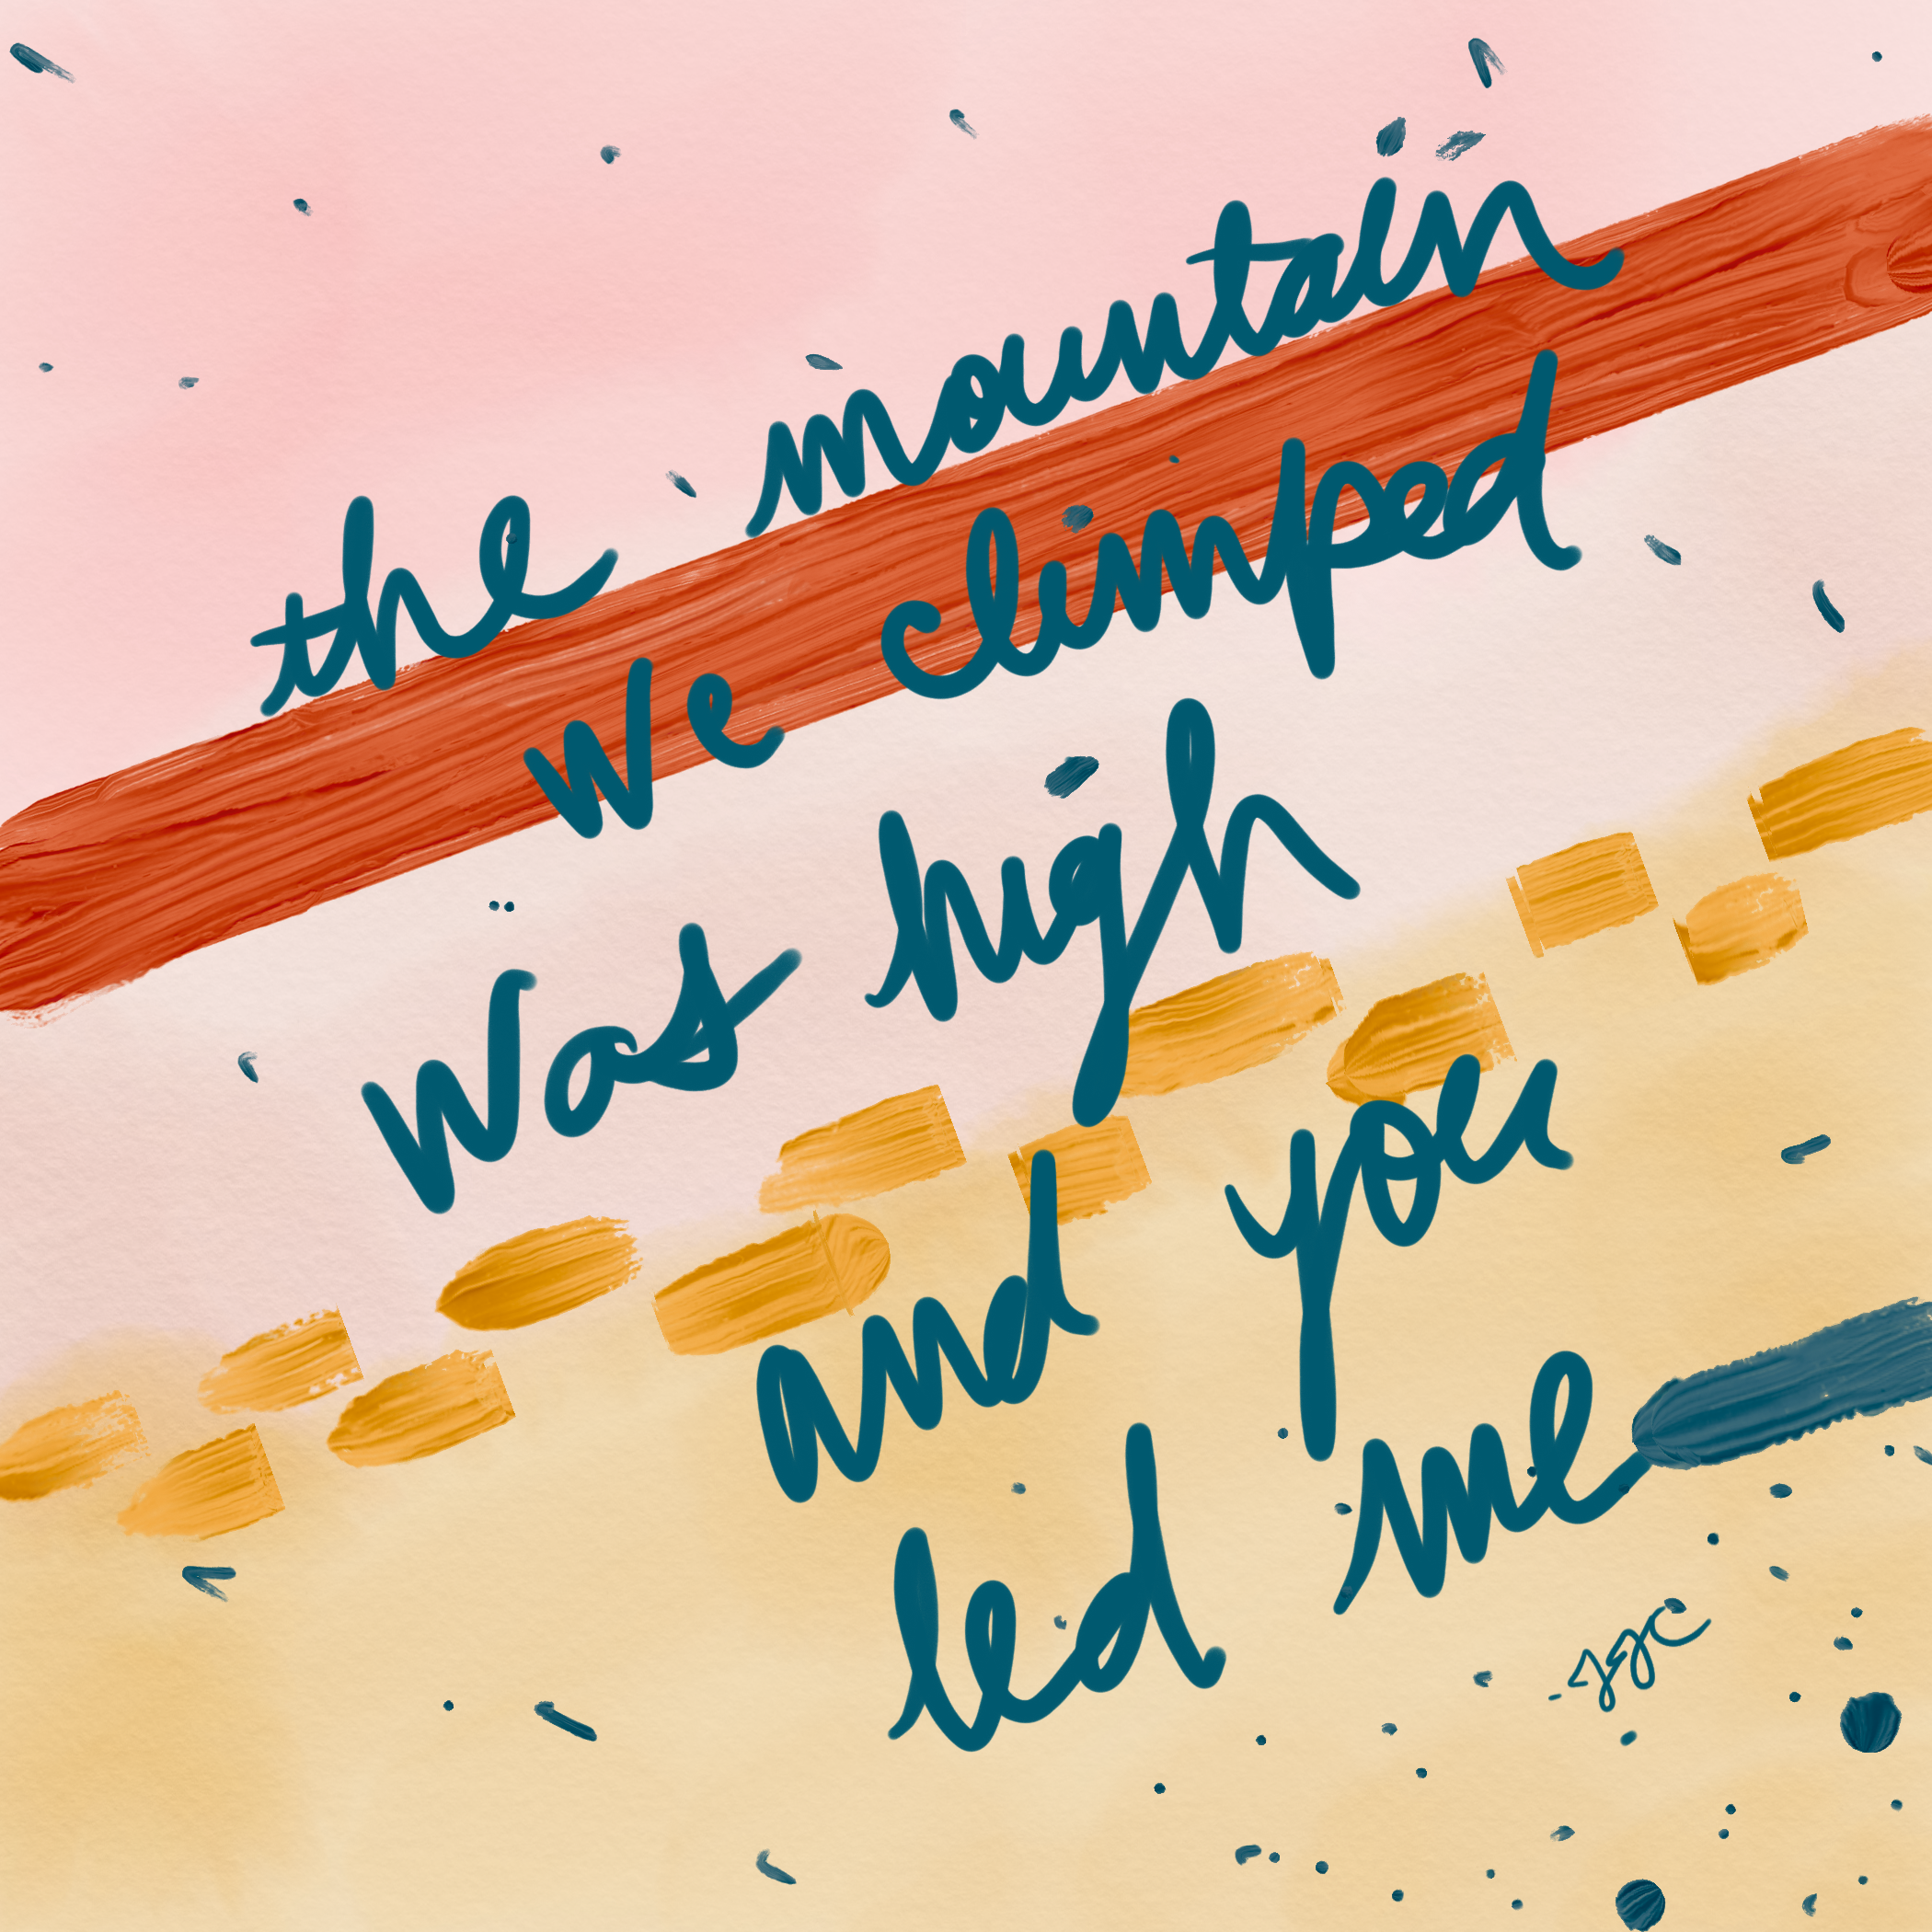 the mountain
we climped
was high
and you
led me
- JJC